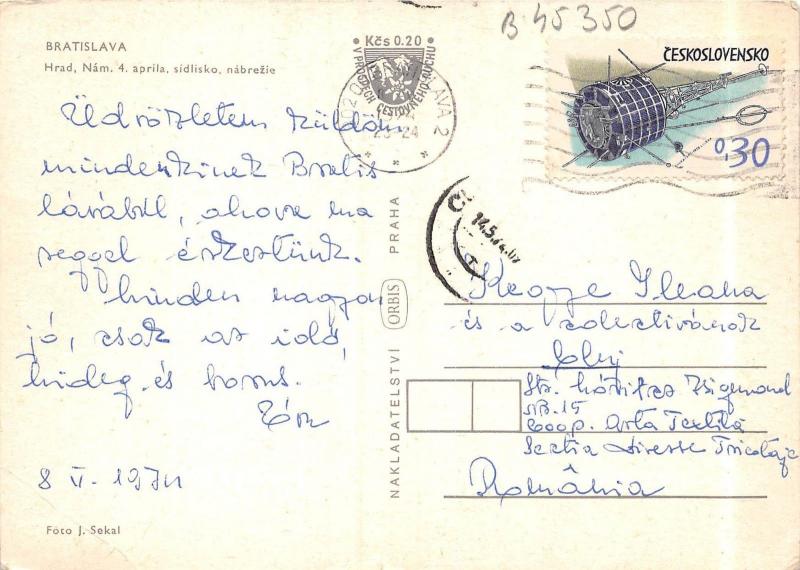 B 45350
BRATISLAVA
Hrad, Nám. 4. apríla, sídlisko, nábrežie
Kčs 0.20
V PROSPĚCH CESTOVNÉHO RUCHU
ČESKOSLOVENSKO
0,30
Üdvözletem küldöm
mindenkinek Bratis
lávából, ahova ma
reggel érkeztünk.
Minden nagyon
jó, csak az idő,
hideg és borus.
8 V. 1974
Foto J. Sekal
NAKLADATELSTVÍ ORBIS PRAHA
14.5.74.07
Ileana
és a colectivának
Cluj
Str. Móricz Zsigmond
nr. 15
Coop. Arta Textilă
Secția diverse Tricotaje
România